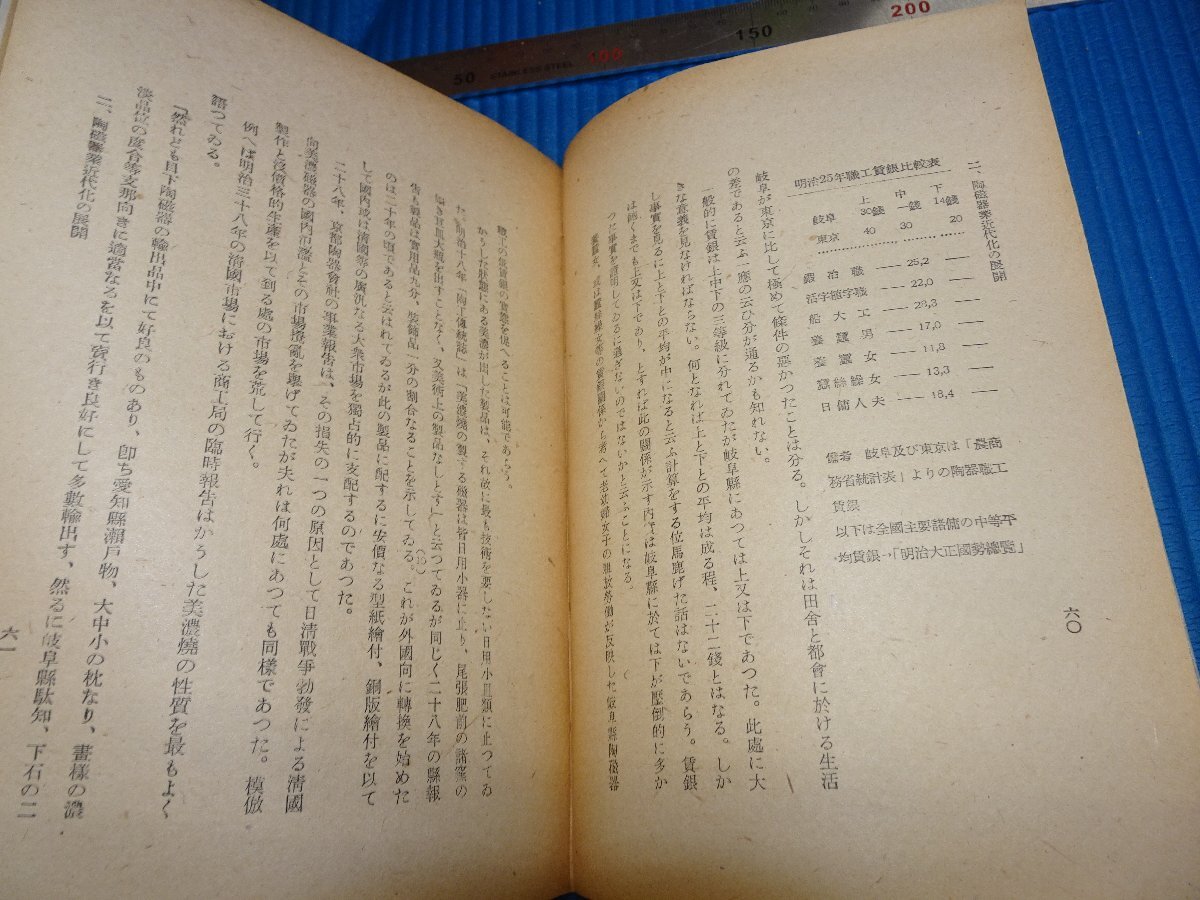 50 STAINLESS STEEL 100 150 200
二、陶磁器業近代化の展開
六〇
明治25年職工賃銀比較表
上 中 下
岐阜 30錢 一錢 14錢
東京 40 30 20
鍛冶職 25,2
活字植字職 22,0
船大工
養蠶男 17,0
養蠶女
蠶絲繰女 13,3
日傭人夫 18,4
備考 岐阜及び東京は「農商
務省統計表」よりの陶器職工
賃銀
以下は全國主要諸傭の中等平
均賃銀―「明治大正國勢總覽」
岐阜が東京に比して極めて條件の惡かつたことは分る。しかしそれは田舍と都會に於ける生活
の差であると云ふ一應の云ひ分が通るかも知れない。
一般的に賃銀は上中下の三等級に分れてゐたが岐阜縣にあつては上又は下であつた。此處に大
きな意義を見なければならない。何となれば上と下との平均は成る程、二十二錢とはなる。しか
し事實を見るに上と下との平均が中になると云ふ計算をする位馬鹿げた話はないであらう。賃銀
は飽くまでも上又は下であり、とすれば此の關係が示す内容は岐阜縣に於ては下が壓倒的に多か
つた事實を證明してゐるに過ぎないのではないかと云ふことになる。
養蠶女、或は蠶絲繰女等の賃銀關係から考へて老幼婦女子の粗放勞働が反映した岐阜縣陶磁器
職工の低賃銀の實態を捉へることは可能であらう。
かうした狀態にある美濃が閞した製品は、それ故に最も技術を要しない日用小皿類に止つてゐ
た。明治十八年「陶工傳統誌」は「美濃燒の製する磁器は皆日用小器に止り、尾張肥前の諸窯の
如き甘皿大瓶を出すことなく、又美術上の製品なしとす」と云つてゐるが同じく二十八年の縣報
告も製品は實用品九分、裝飾品一分の割合なることを示してゐる。これが外國向に轉換を始めた
のは二十年の頃であると云はれてゐるが此の製品に配するに安價なる型紙繪付、銅版繪付を以て
して國内或は淸國等の廣汎なる大衆市場を獨占的に支配するのであつた。
二十八年、京都陶器會社の事業報告は、その損失の一つの原因として日淸戰爭勃發による淸國
向美濃磁器の國内氾濫とその市場攪亂を擧げてゐたが夫れは何處にあつても同樣であつた。模倣
製作と沒價格的生產を以て到る處の市場を荒して行く。
例へば明治三十八年の淸國市場における商工局の臨時報告はかうした美濃燒の性質を最もよく
語つてゐる。
「然れども目下陶磁器の輸出品中にて好良のものあり、卽ち愛知縣瀨戸物、大中小の枕なり、畫樣の濃
淡品位の度合等支那向きに適當なるを以て賣行き良好にして多數輸出す、然るに岐阜縣駄知、下石の二
二、陶磁器業近代化の展開
六一